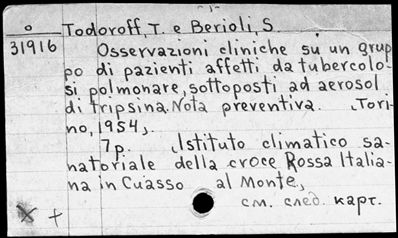 o Todoroff, T. e Berioli, S.
31916 Osservazioni cliniche su un grup
po di pazienti affetti da tubercolo-
si polmonare, sottoposti ad aerosol
di tripsina. Nota preventiva. Tori-
no, 1954.
7p. Istituto climatico sa-
natoriale della croce Rossa Italia-
na in Cuasso al Monte,
см. след. карт.